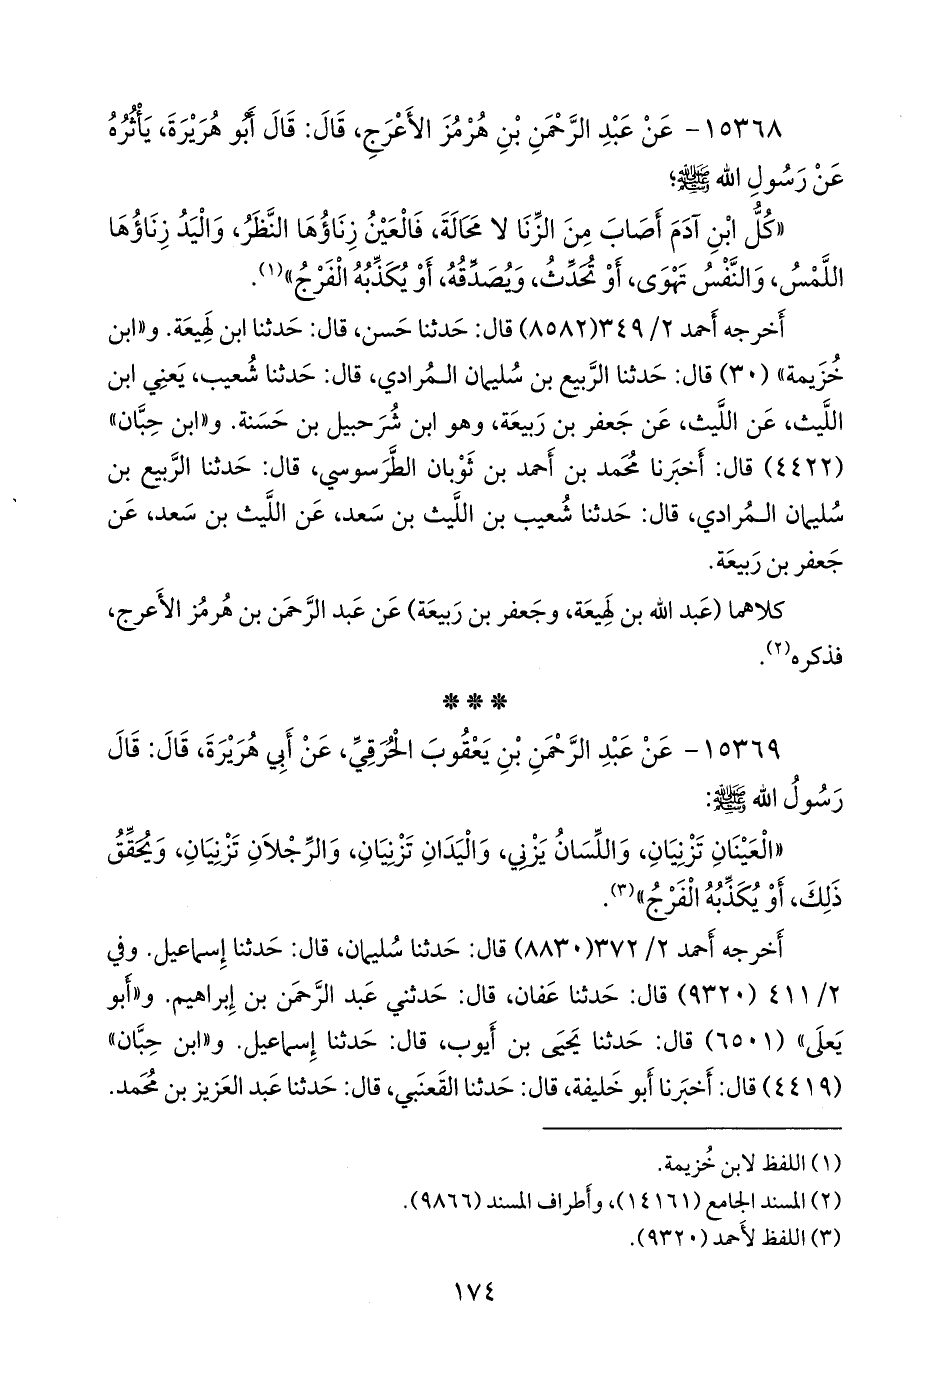 ١٥٣٦٨- عَنْ عَبْدِ الرَّحْمَنِ بْنِ هُرْمُزَ الأَعْرَجِ، قَالَ: قَالَ أَبُو هُرَيْرَةَ، يَأْثُرُهُ
عَنْ رَسُولِ الله ﷺ؛
«كُلُّ ابْنِ آدَمَ أَصَابَ مِنَ الزِّنَا لا مَحَالَةَ، فَالْعَيْنُ زِنَاؤُهَا النَّظَرُ، وَالْيَدُ زِنَاؤُهَا
اللَّمْسُ، وَالنَّفْسُ تَهْوَى، أَوْ تُحَدِّثُ، وَيُصَدِّقُهُ، أَوْ يُكَذِّبُهُ الْفَرْجُ»(١).
أَخرجه أَحمد ٢/ ٣٤٩(٨٥٨٢) قال: حَدثنا حَسن، قال: حَدثنا ابن لَهِيعَة. و«ابن
خُزيمة» (٣٠) قال: حَدثنا الرَّبيع بن سُليمان الـمُرادي، قال: حَدثنا شُعيب، يَعني ابن
اللَّيث، عَن اللَّيث، عَن جَعفر بن رَبيعَة، وهو ابن شُرَحبيل بن حَسَنة. و«ابن حِبَّان»
(٤٤٢٢) قال: أَخبَرنا مُحمد بن أَحمد بن ثَوْبان الطَّرَسوسي، قال: حَدثنا الرَّبيع بن
سُليمان الـمُرادي، قال: حَدثنا شُعيب بن اللَّيث بن سَعد، عَن اللَّيث بن سَعد، عَن
جَعفر بن رَبيعَة.
كلاهما (عَبد الله بن لَهِيعَة، وجَعفر بن رَبيعَة) عَن عَبد الرَّحمَن بن هُرمُز الأَعرج،
فذكره(٢).
* * *
١٥٣٦٩- عَنْ عَبْدِ الرَّحْمَنِ بْنِ يَعْقُوبَ الْحُرَقِيِّ، عَنْ أَبِي هُرَيْرَةَ، قَالَ: قَالَ
رَسُولُ الله ﷺ:
«الْعَيْنَانِ تَزْنِيَانِ، وَاللِّسَانُ يَزْنِي، وَالْيَدَانِ تَزْنِيَانِ، وَالرِّجْلاَنِ تَزْنِيَانِ، وَيُحَقِّقُ
ذَلِكَ، أَوْ يُكَذِّبُهُ الْفَرْجُ»(٣).
أَخرجه أَحمد ٢/ ٣٧٢(٨٨٣٠) قال: حَدثنا سُليمان، قال: حَدثنا إِسماعيل. وفي
٢/ ٤١١ (٩٣٢٠) قال: حَدثنا عَفان، قال: حَدثني عَبد الرَّحمَن بن إِبراهيم. و«أَبو
يَعلَى» (٦٥٠١) قال: حَدثنا يَحيَى بن أَيوب، قال: حَدثنا إِسماعيل. و«ابن حِبَّان»
(٤٤١٩) قال: أَخبَرنا أَبو خَليفة، قال: حَدثنا القَعنَبي، قال: حَدثنا عَبد العَزيز بن مُحمد.
(١) اللفظ لابن خُزيمة.
(٢) المسند الجامع (١٤١٦١)، وأَطراف المسند (٩٨٦٦).
(٣) اللفظ لأَحمد (٩٣٢٠).
١٧٤